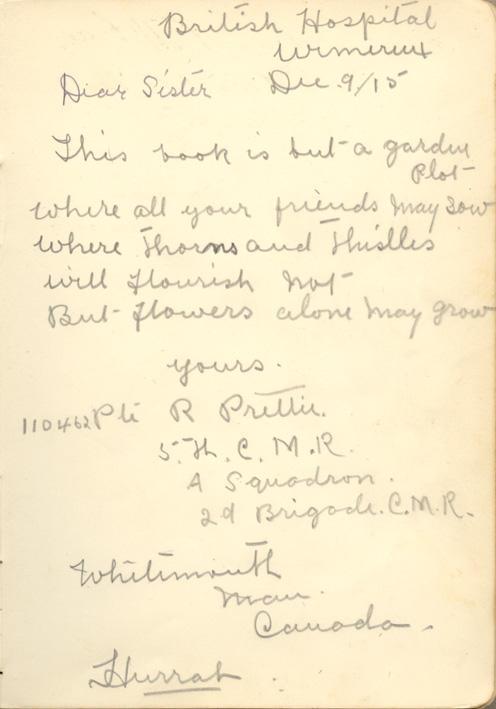 British Hospital
Wimereux
Dear Sister Dec. 9/15
This book is but a garden
Plot
where all your friends may sow
where Thorns and Thistles
will flourish not
But flowers alone may grow
yours.
110462 Pte R Prettie.
5.Th. C. M. R.
A Squadron.
2d Brigade. C.M.R.
Whitemouth
Man.
Canada.
Hurrah.